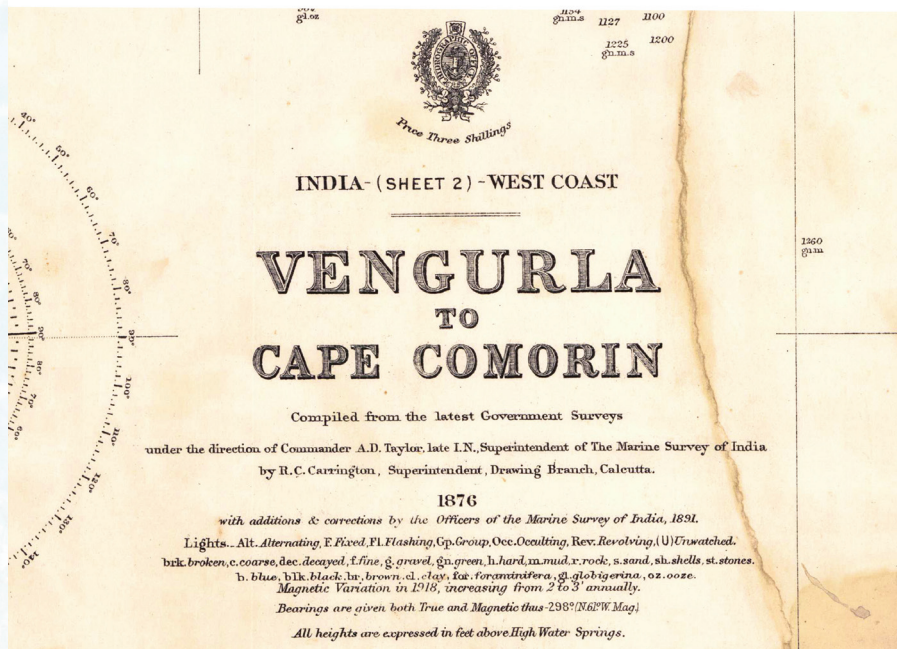 gl.oz
1134
gn.m.s
1127
1100
1225
gn.m.s
1200
HYDROGRAPHIC OFFICE
Price Three Shillings
INDIA-(SHEET 2)-WEST COAST
VENGURLA
TO
CAPE COMORIN
Compiled from the latest Government Surveys
under the direction of Commander A.D. Taylor, late I.N., Superintendent of The Marine Survey of India
by R.C. Carrington, Superintendent, Drawing Branch, Calcutta.
1876
with additions & corrections by the Officers of the Marine Survey of India, 1891.
Lights._Alt. Alternating, F. Fixed, Fl. Flashing, Gp. Group, Occ. Occulting, Rev. Revolving, (U) Unwatched.
brk. broken, c. coarse, dec. decayed, f. fine, g. gravel, gn. green, h. hard, m. mud, r. rock, s. sand, sh. shells, st. stones.
b. blue, blk. black, br. brown, cl. clay, for. foraminifera, gl. globigerina, oz. ooze.
Magnetic Variation in 1918, increasing from 2 to 3' annually.
Bearings are given both True and Magnetic thus-298° (N.61°W. Mag.)
All heights are expressed in feet above High Water Springs.
1260
gn.m
40°
50°
60°
70°
80°
90°
100°
110°
120°
130°
140°
70°
80°
90°
80°
70°
60°